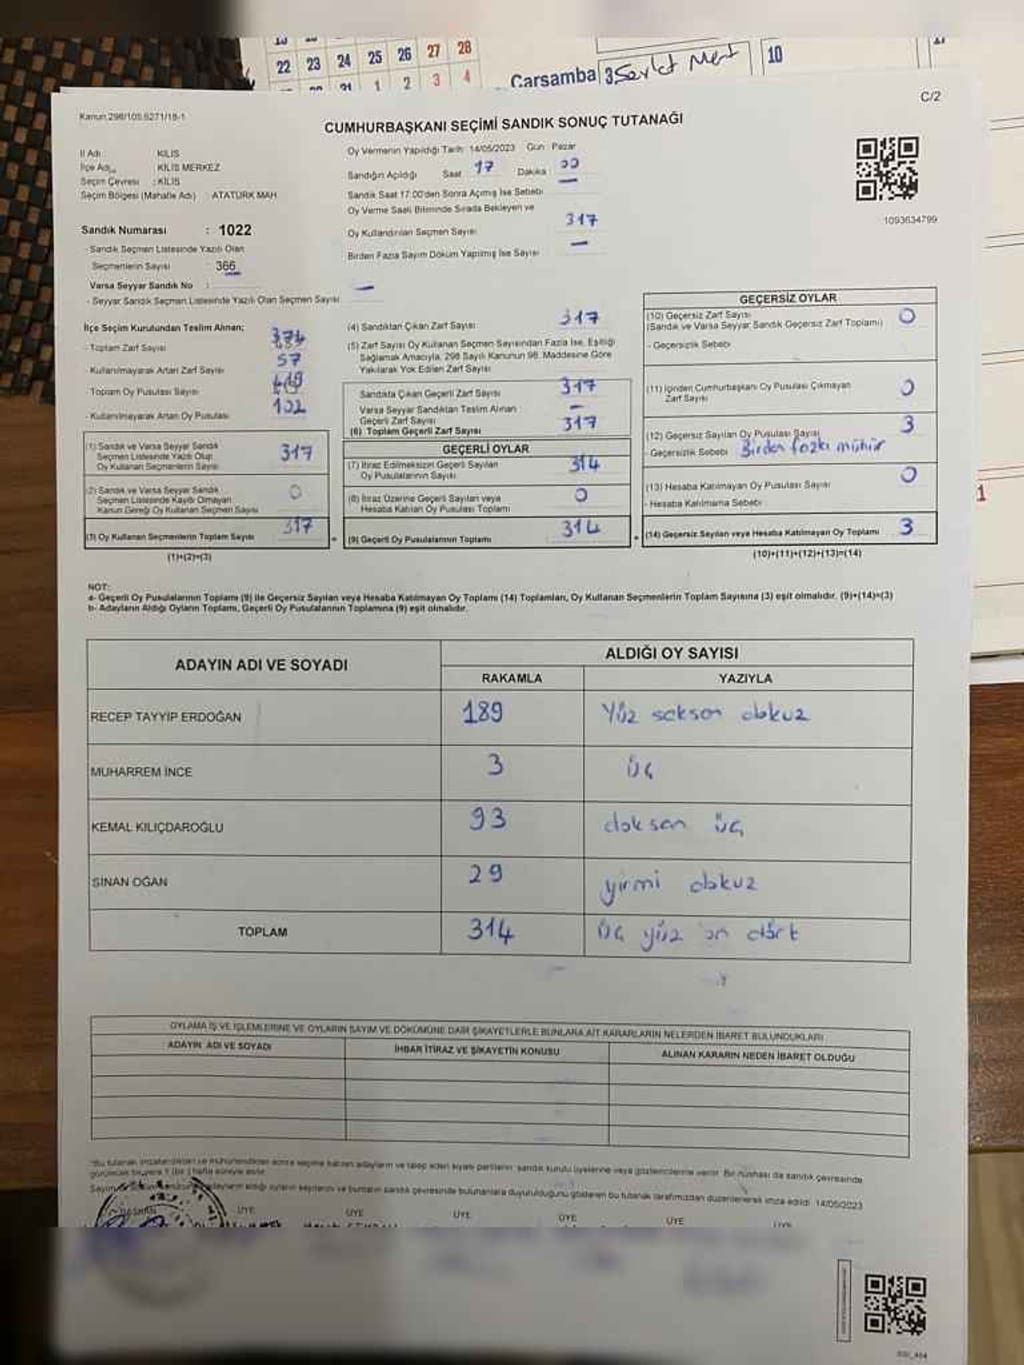 22 23 24 25 26 27 28
1 2 3 4
Çarşamba 3
10
C/2
Kanun.298/105.6271/18-1
CUMHURBAŞKANI SEÇİMİ SANDIK SONUÇ TUTANAĞI
İl Adı : KİLİS
İlçe Adı : KİLİS MERKEZ
Seçim Çevresi : KİLİS
Seçim Bölgesi (Mahalle Adı) : ATATÜRK MAH
Oy Vermenin Yapıldığı Tarih: 14/05/2023 Gün: Pazar
Sandığın Açıldığı Saat 17 Dakika 00
Sandık Saat 17:00'den Sonra Açılmış İse Sebebi –
Oy Verme Saati Bitiminde Sırada Bekleyen ve
Oy Kullandırılan Seçmen Sayısı 317
Birden Fazla Sayım Döküm Yapılmış İse Sayısı –
1093634799
Sandık Numarası : 1022
- Sandık Seçmen Listesinde Yazılı Olan
Seçmenlerin Sayısı : 366
Varsa Seyyar Sandık No :
- Seyyar Sandık Seçmen Listesinde Yazılı Olan Seçmen Sayısı –
İlçe Seçim Kurulundan Teslim Alınan;
- Toplam Zarf Sayısı
- Kullanılmayarak Artan Zarf Sayısı 57
- Toplam Oy Pusulası Sayısı
- Kullanılmayarak Artan Oy Pusulası 102
(1) Sandık ve Varsa Seyyar Sandık
Seçmen Listesinde Yazılı Olup
Oy Kullanan Seçmenlerin Sayısı 317
(2) Sandık ve Varsa Seyyar Sandık
Seçmen Listesinde Kayıtlı Olmayan
Kanun Gereği Oy Kullanan Seçmen Sayısı 0
(3) Oy Kullanan Seçmenlerin Toplam Sayısı 317
(1)+(2)=(3)
(4) Sandıktan Çıkan Zarf Sayısı 317
(5) Zarf Sayısı Oy Kullanan Seçmen Sayısından Fazla İse, Eşitliği
Sağlamak Amacıyla, 298 Sayılı Kanunun 98. Maddesine Göre
Yakılarak Yok Edilen Zarf Sayısı
Sandıkta Çıkan Geçerli Zarf Sayısı 317
Varsa Seyyar Sandıktan Teslim Alınan
Geçerli Zarf Sayısı –
(6) Toplam Geçerli Zarf Sayısı 317
GEÇERLİ OYLAR
(7) İtiraz Edilmeksizin Geçerli Sayılan
Oy Pusulalarının Sayısı 314
(8) İtiraz Üzerine Geçerli Sayılan veya
Hesaba Katılan Oy Pusulası Toplamı 0
(9) Geçerli Oy Pusulalarının Toplamı 314
GEÇERSİZ OYLAR
(10) Geçersiz Zarf Sayısı 0
(Sandık ve Varsa Seyyar Sandık Geçersiz Zarf Toplamı)
- Geçersizlik Sebebi
(11) İçinden Cumhurbaşkanı Oy Pusulası Çıkmayan
Zarf Sayısı 0
(12) Geçersiz Sayılan Oy Pusulası Sayısı 3
- Geçersizlik Sebebi Birden fazla mühür
(13) Hesaba Katılmayan Oy Pusulası Sayısı 0
- Hesaba Katılmama Sebebi
(14) Geçersiz Sayılan veya Hesaba Katılmayan Oy Toplamı 3
(10)+(11)+(12)+(13)=(14)
NOT:
a- Geçerli Oy Pusulalarının Toplamı (9) ile Geçersiz Sayılan veya Hesaba Katılmayan Oy Toplamı (14) Toplamları, Oy Kullanan Seçmenlerin Toplam Sayısına (3) eşit olmalıdır. (9)+(14)=(3)
b- Adayların Aldığı Oyların Toplamı, Geçerli Oy Pusulalarının Toplamına (9) eşit olmalıdır.
ADAYIN ADI VE SOYADI
ALDIĞI OY SAYISI
RAKAMLA YAZIYLA
RECEP TAYYİP ERDOĞAN 189 Yüz seksen dokuz
MUHARREM İNCE 3 üç
KEMAL KILIÇDAROĞLU 93 doksan üç
SİNAN OĞAN 29 yirmi dokuz
TOPLAM 314 üç yüz on dört
OYLAMA İŞ VE İŞLEMLERİNE VE OYLARIN SAYIM VE DÖKÜMÜNE DAİR ŞİKAYETLERLE BUNLARA AİT KARARLARIN NELERDEN İBARET BULUNDUKLARI
ADAYIN ADI VE SOYADI İHBAR İTİRAZ VE ŞİKAYETİN KONUSU ALINAN KARARIN NEDEN İBARET OLDUĞU
BAŞKAN ÜYE ÜYE ÜYE ÜYE ÜYE ÜYE